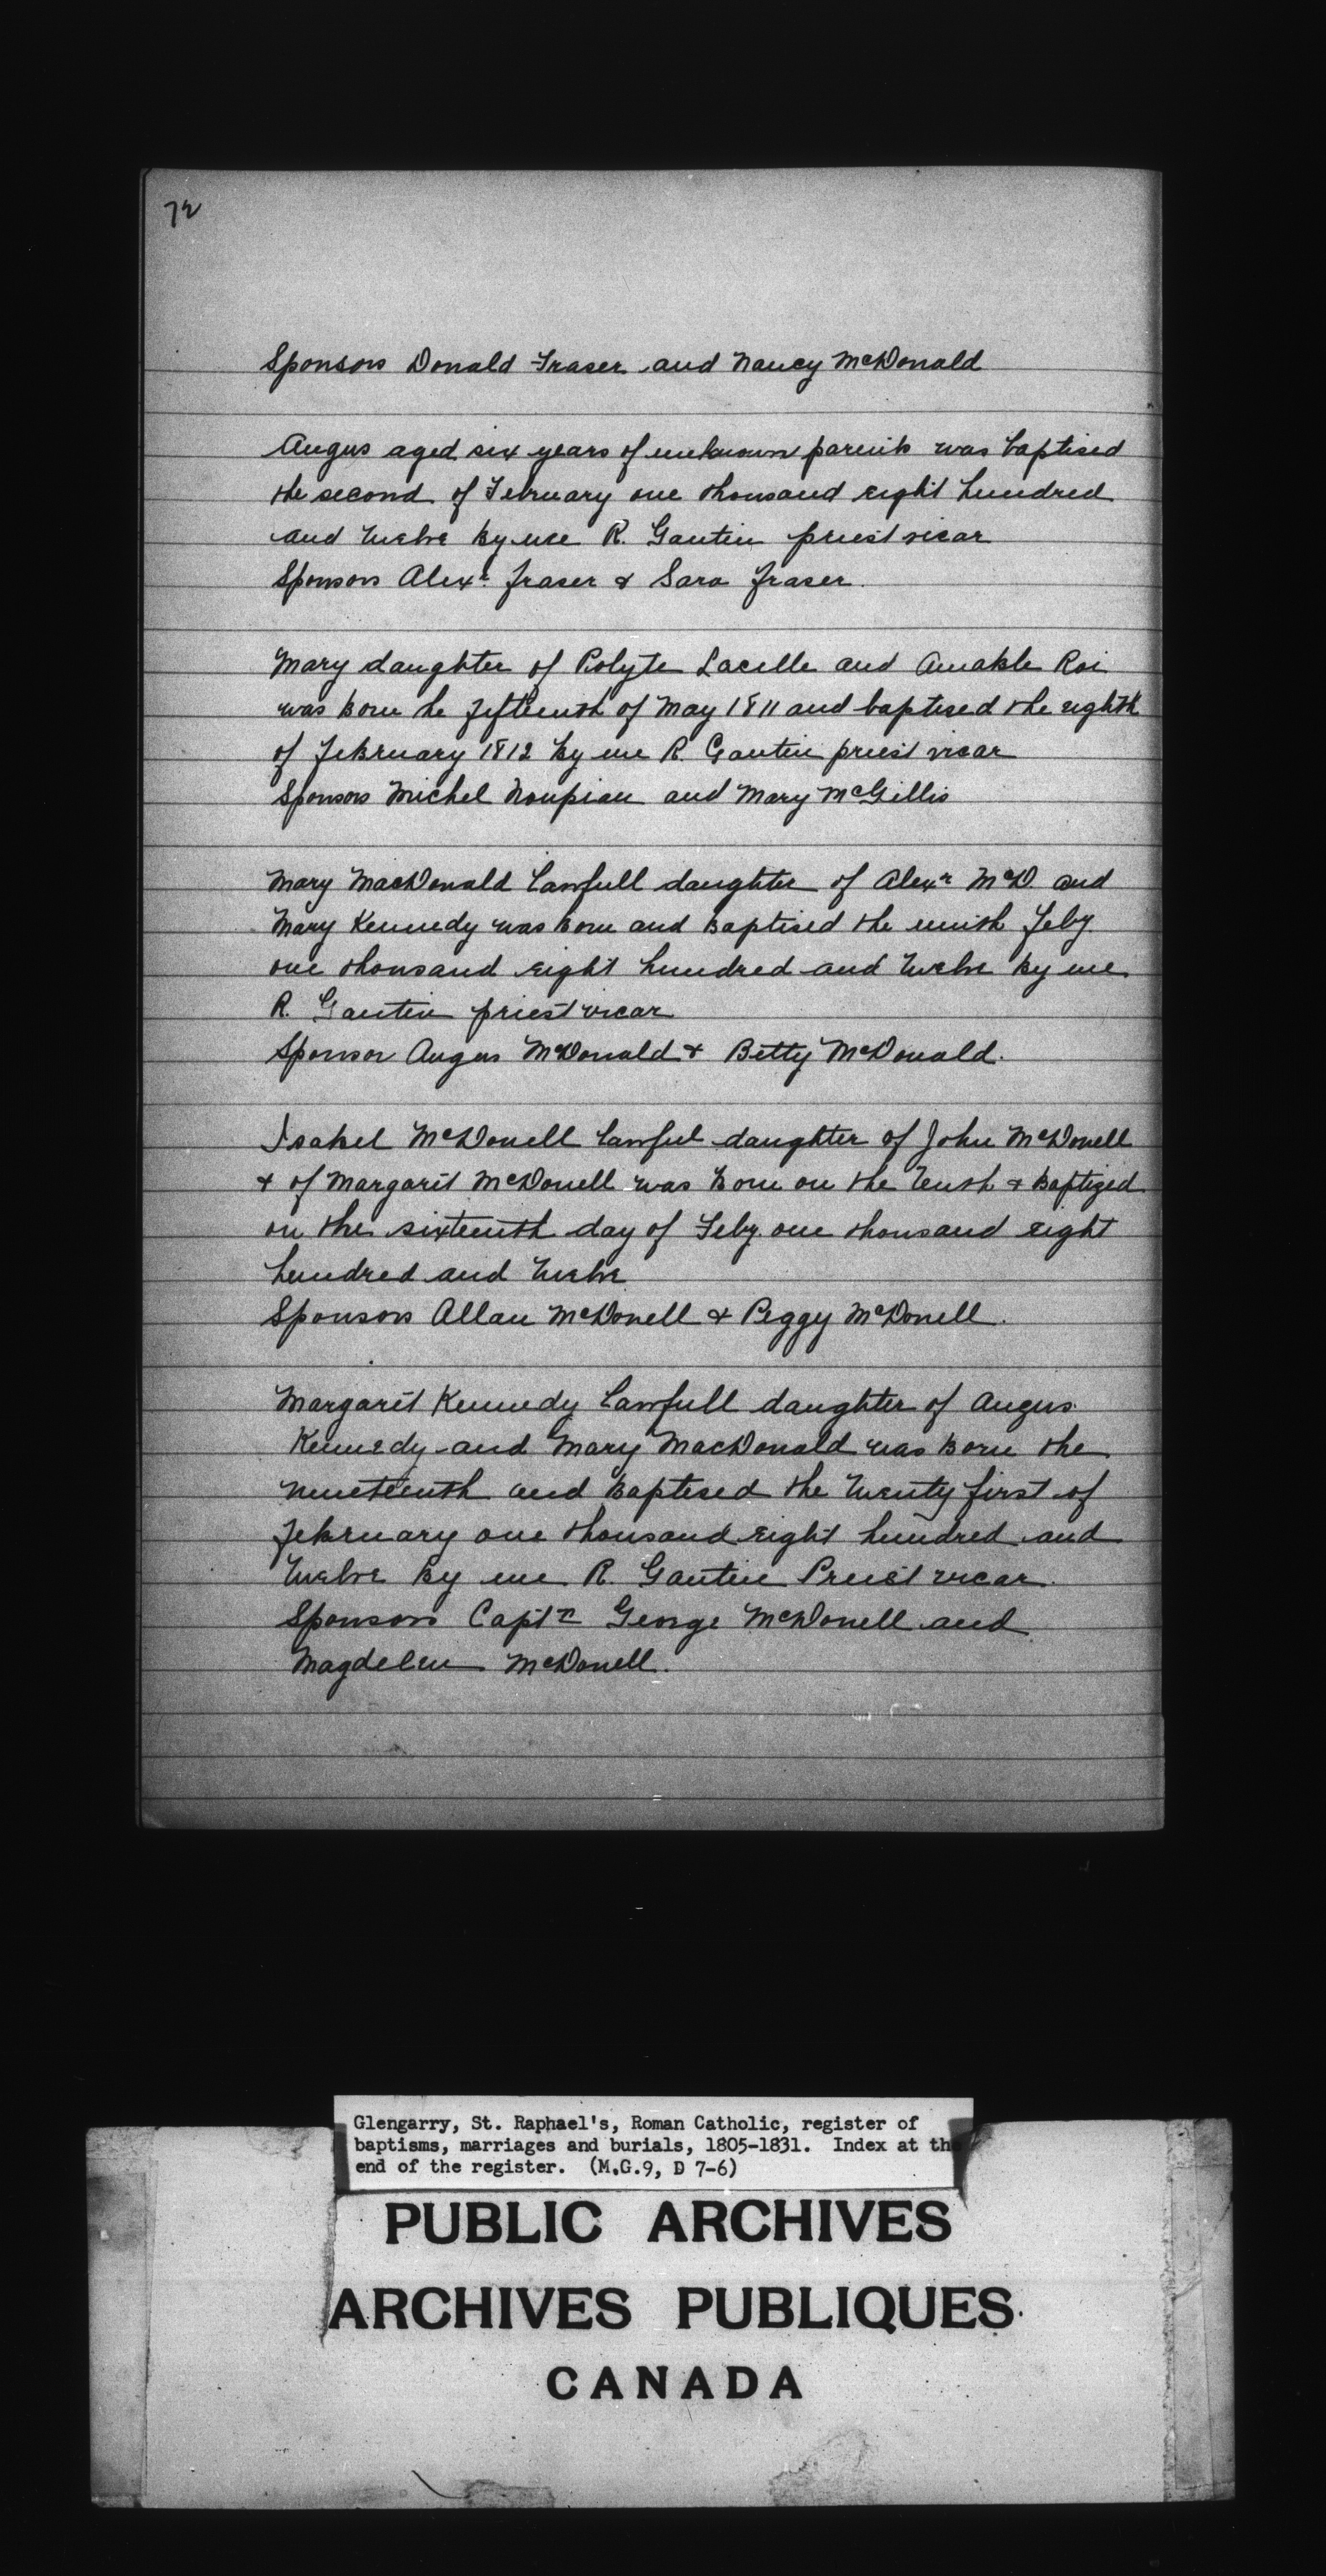 72
Sponsors Donald Fraser and Nancy McDonald
Angus aged six years of unknown parents was baptised
the second of February one thousand eight hundred
and twelve by me R. Gautin priest vicar
Sponsors Alexr Fraser & Sara Fraser.
Mary daughter of Polyte Lacelle and Amable Roi
was born he fifteenth of May 1811 and baptised the eighth
of February 1812 by me R. Gautin priest vicar
Sponsors Michel and Mary McGillis
Mary MacDonald lawfull daughter of Alexr McD. and
Mary Kennedy was born and baptised the ninth Feby
one thousand eight hundred and twelve by me
R. Gautin priest vicar
Sponsor Angus McDonald & Betty McDonald.
Isabel McDonell lawful daughter of John McDonell
& of Margaret McDonell was born on the tenth & baptized
on the sixteenth day of Feby. one thousand eight
hundred and twelve
Sponsors Allan McDonell & Peggy McDonell.
Margaret Kennedy lawfull daughter of Angus
Kennedy and Mary MacDonald was born the
nineteenth and baptised the twenty first of
February one thousand eight hundred and
twelve by me R. Gautin Priest vicar.
Sponsors Captn George McDonell and
Magdelen McDonell.
Glengarry, St. Raphael's, Roman Catholic, register of
baptisms, marriages and burials, 1805-1831. Index at the
end of the register. (M.G.9, D 7-6)
PUBLIC ARCHIVES
ARCHIVES PUBLIQUES
CANADA